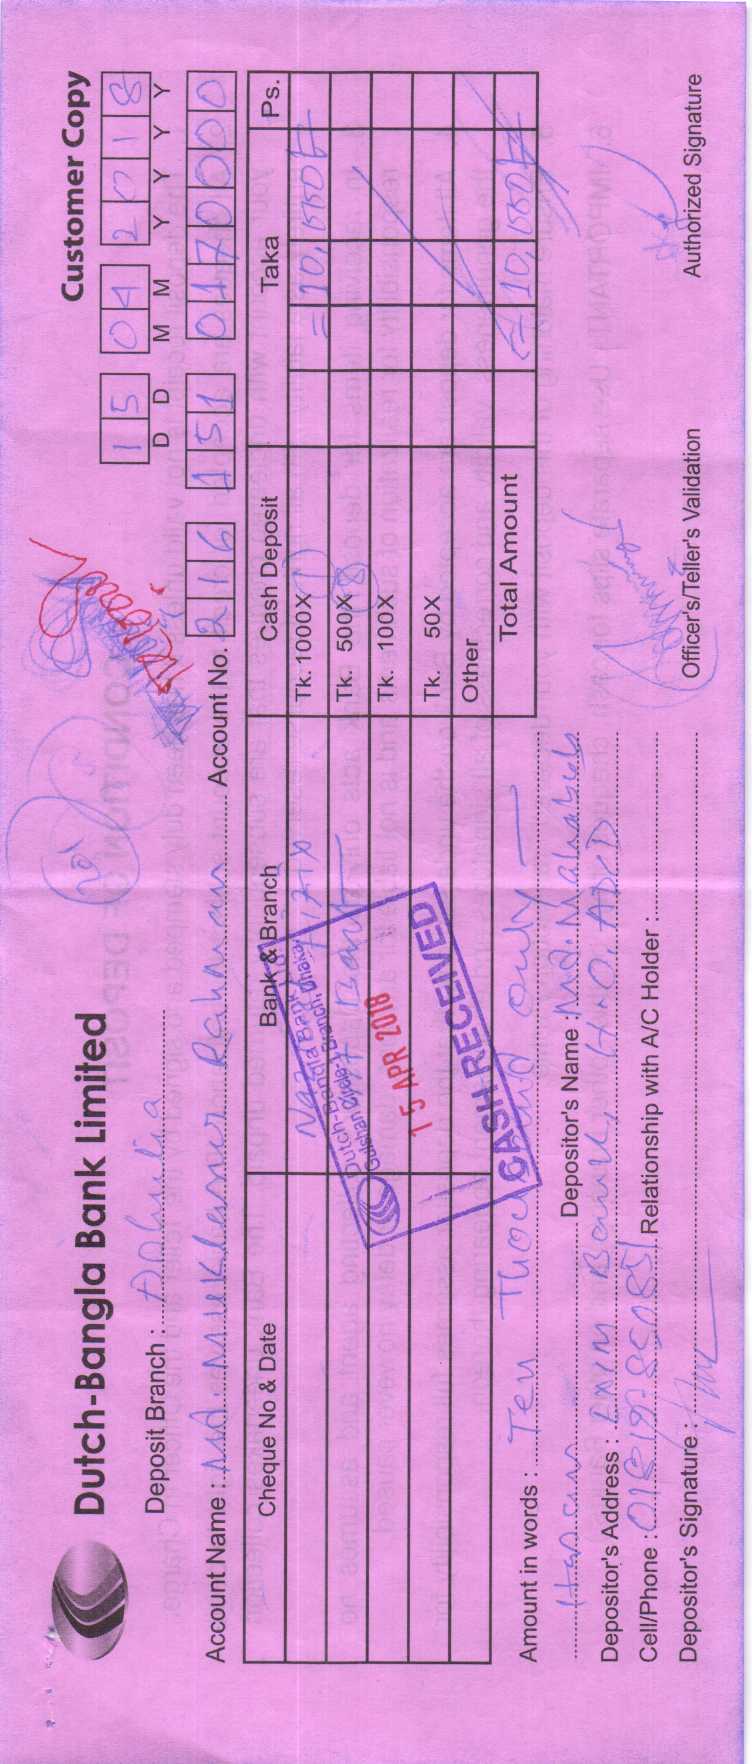 Dutch-Bangla Bank Limited
Customer Copy
Deposit Branch :
15 04 2018
D D M M Y Y Y Y
Account Name : Md. Mukhlesur Rahaman Account No. 216 151 017000
Cheque No & Date Bank & Branch Cash Deposit Taka Ps.
Tk. 1000X = 10,000/-
Tk. 500X
Tk. 100X
Tk. 50X
Other
Total Amount = 10,000/-
Dutch-Bangla Bank
Gulshan Circle Branch, Dhaka
15 APR 2018
CASH RECEIVED
Amount in words : Ten Thousand only
Depositor's Name : Md. Mahabub
Hasan
Depositor's Address : EXIM Bank, H.O.
Cell/Phone : Relationship with A/C Holder :
Depositor's Signature : Officer's/Teller's Validation Authorized Signature